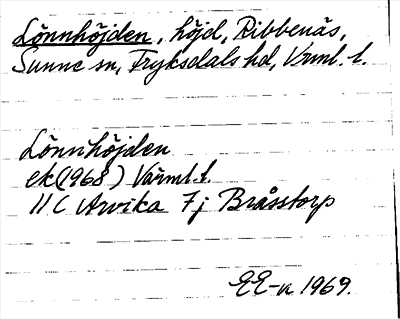 Lönnhöjden, höjd, Ribbenäs,
Sunne sn, Fryksdals hd, Vrml. l.
Lönnhöjden
ek(1968) Värml. l.
11 C Arvika 7j Bråsstorp
EE-n 1969.